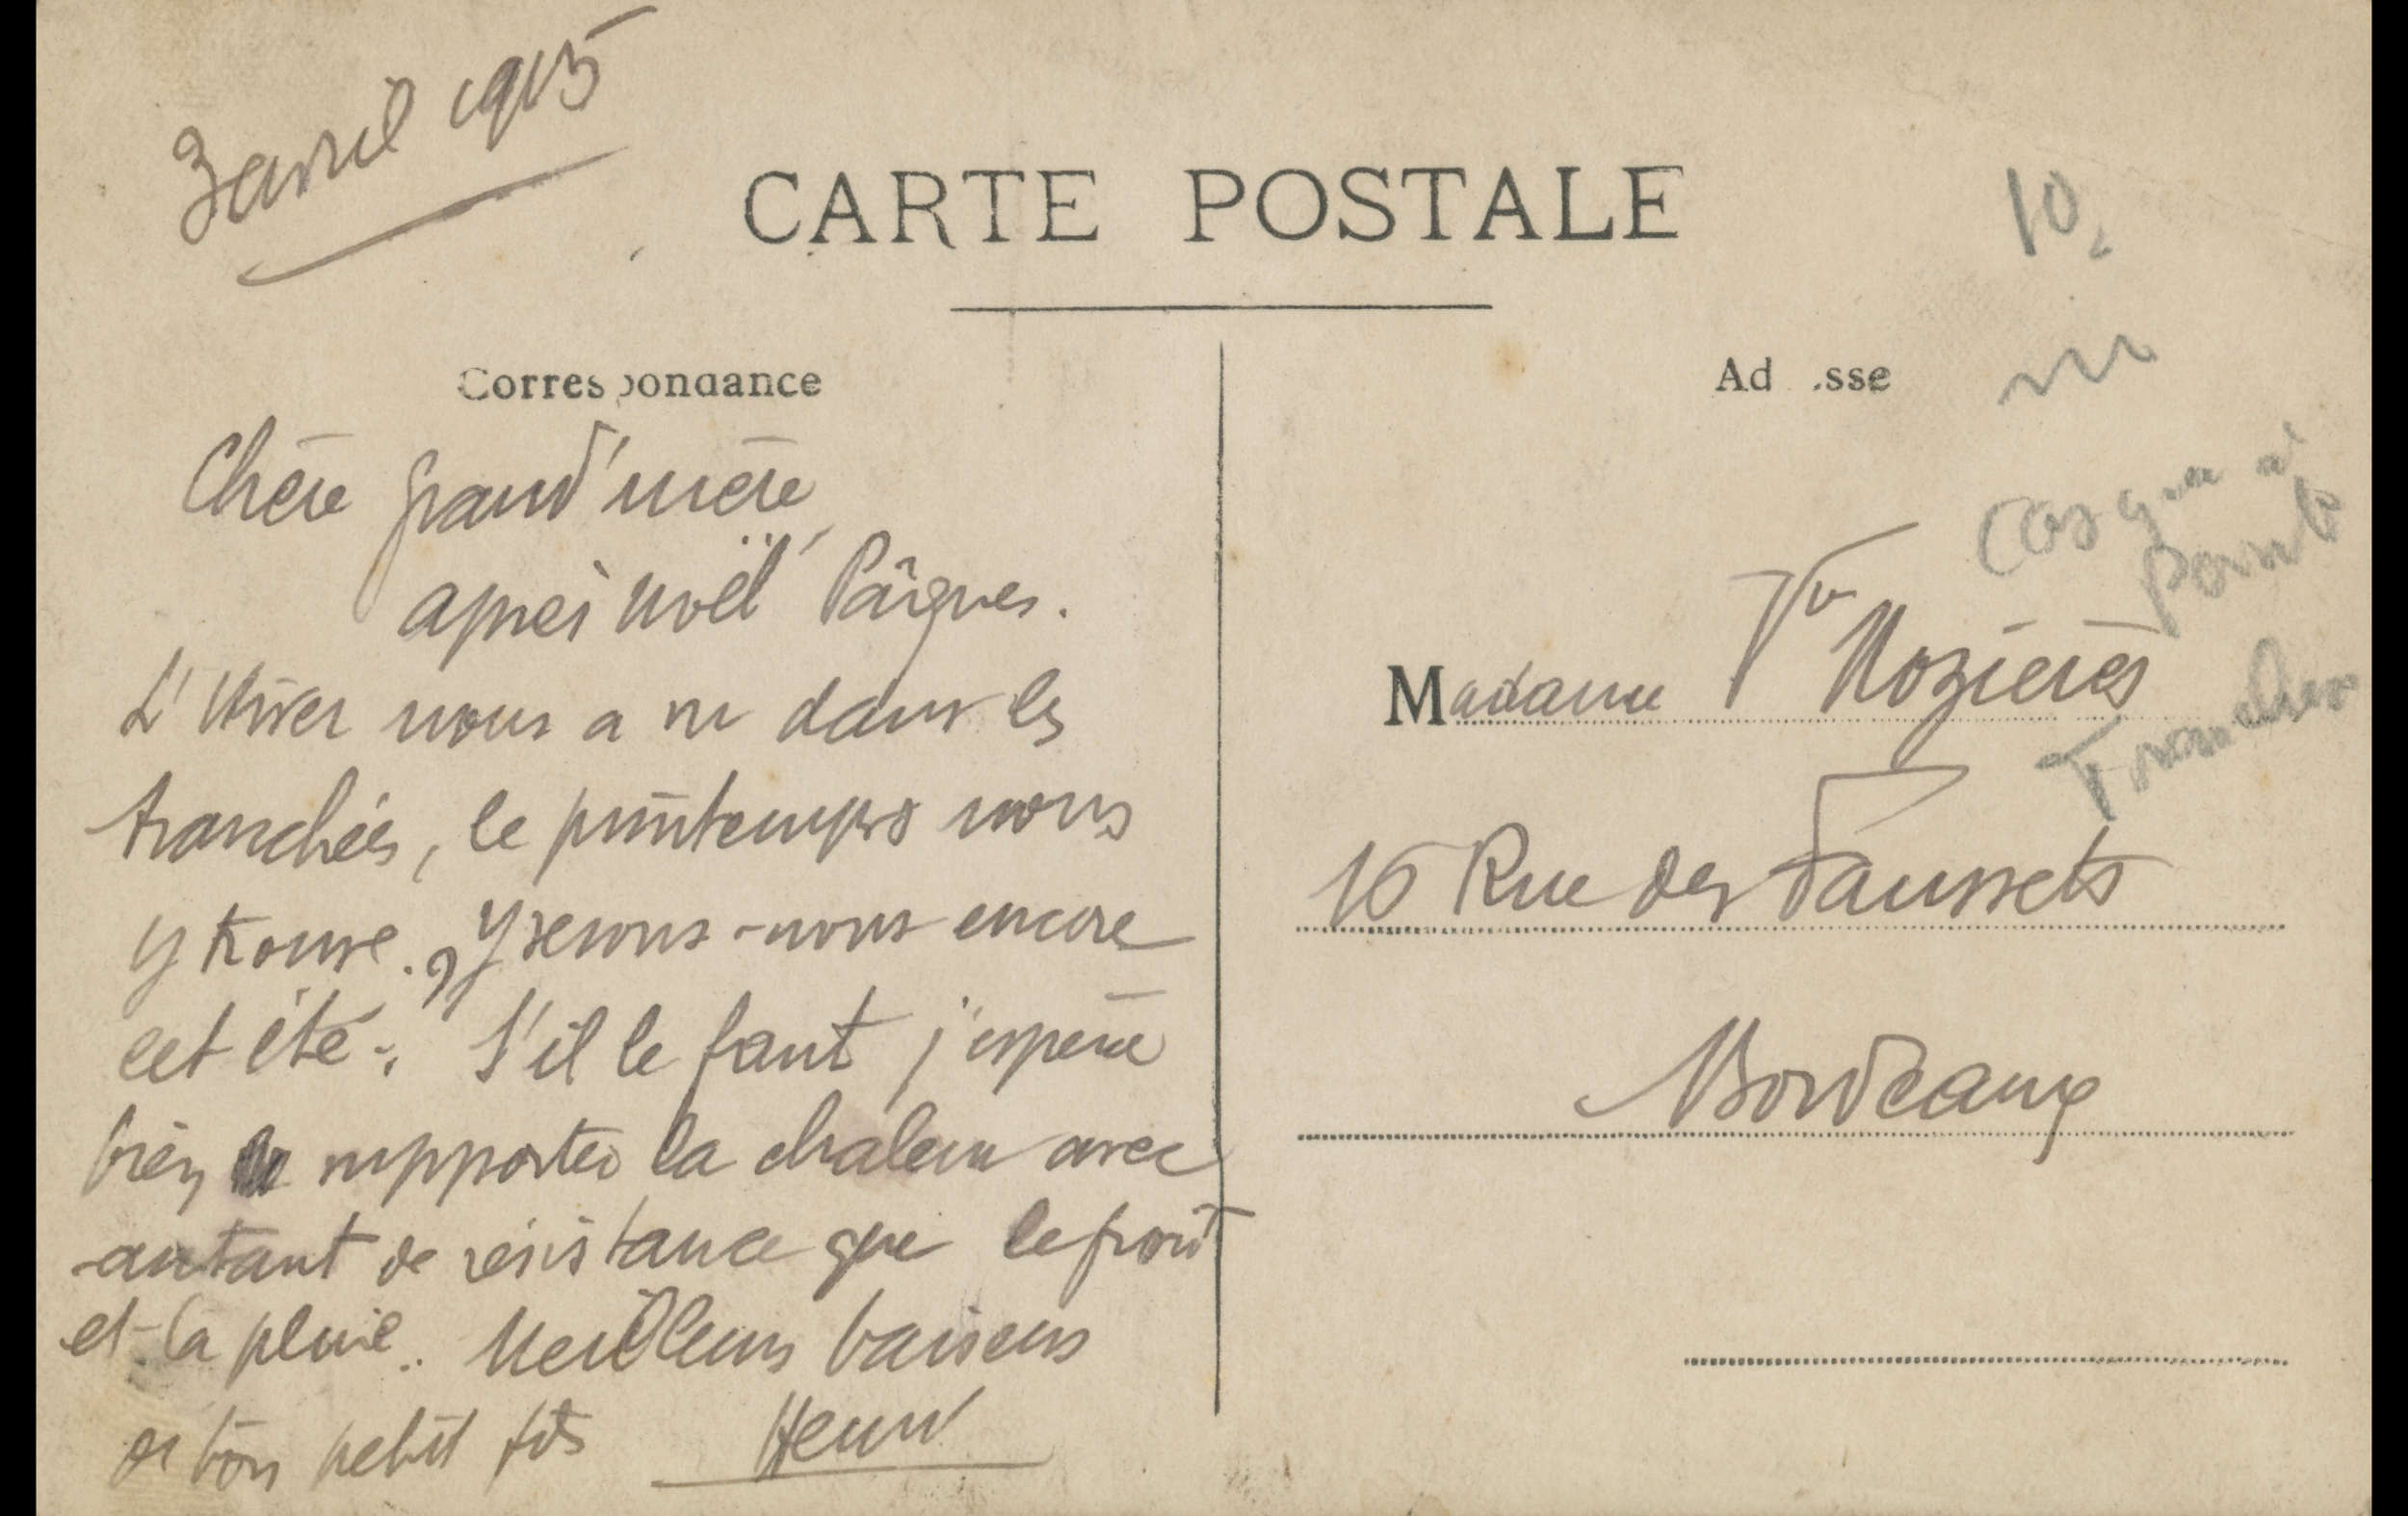 3 avril 1915
CARTE POSTALE
Correspondance
Adresse
Chère grand'mère,
après Noël Pâques.
L'hiver nous a vu dans les
tranchées, le printemps nous
y trouve. Y serons-nous encore
cet été? S'il le faut j'espère
bien supporter la chaleur avec
autant de résistance que le froid
et la pluie. Meilleurs baisers
de ton petit fils Henri
Madame Vve Nozières
16 Rue des Faussets
Bordeaux
10
Casque à
pointe
Tranchées